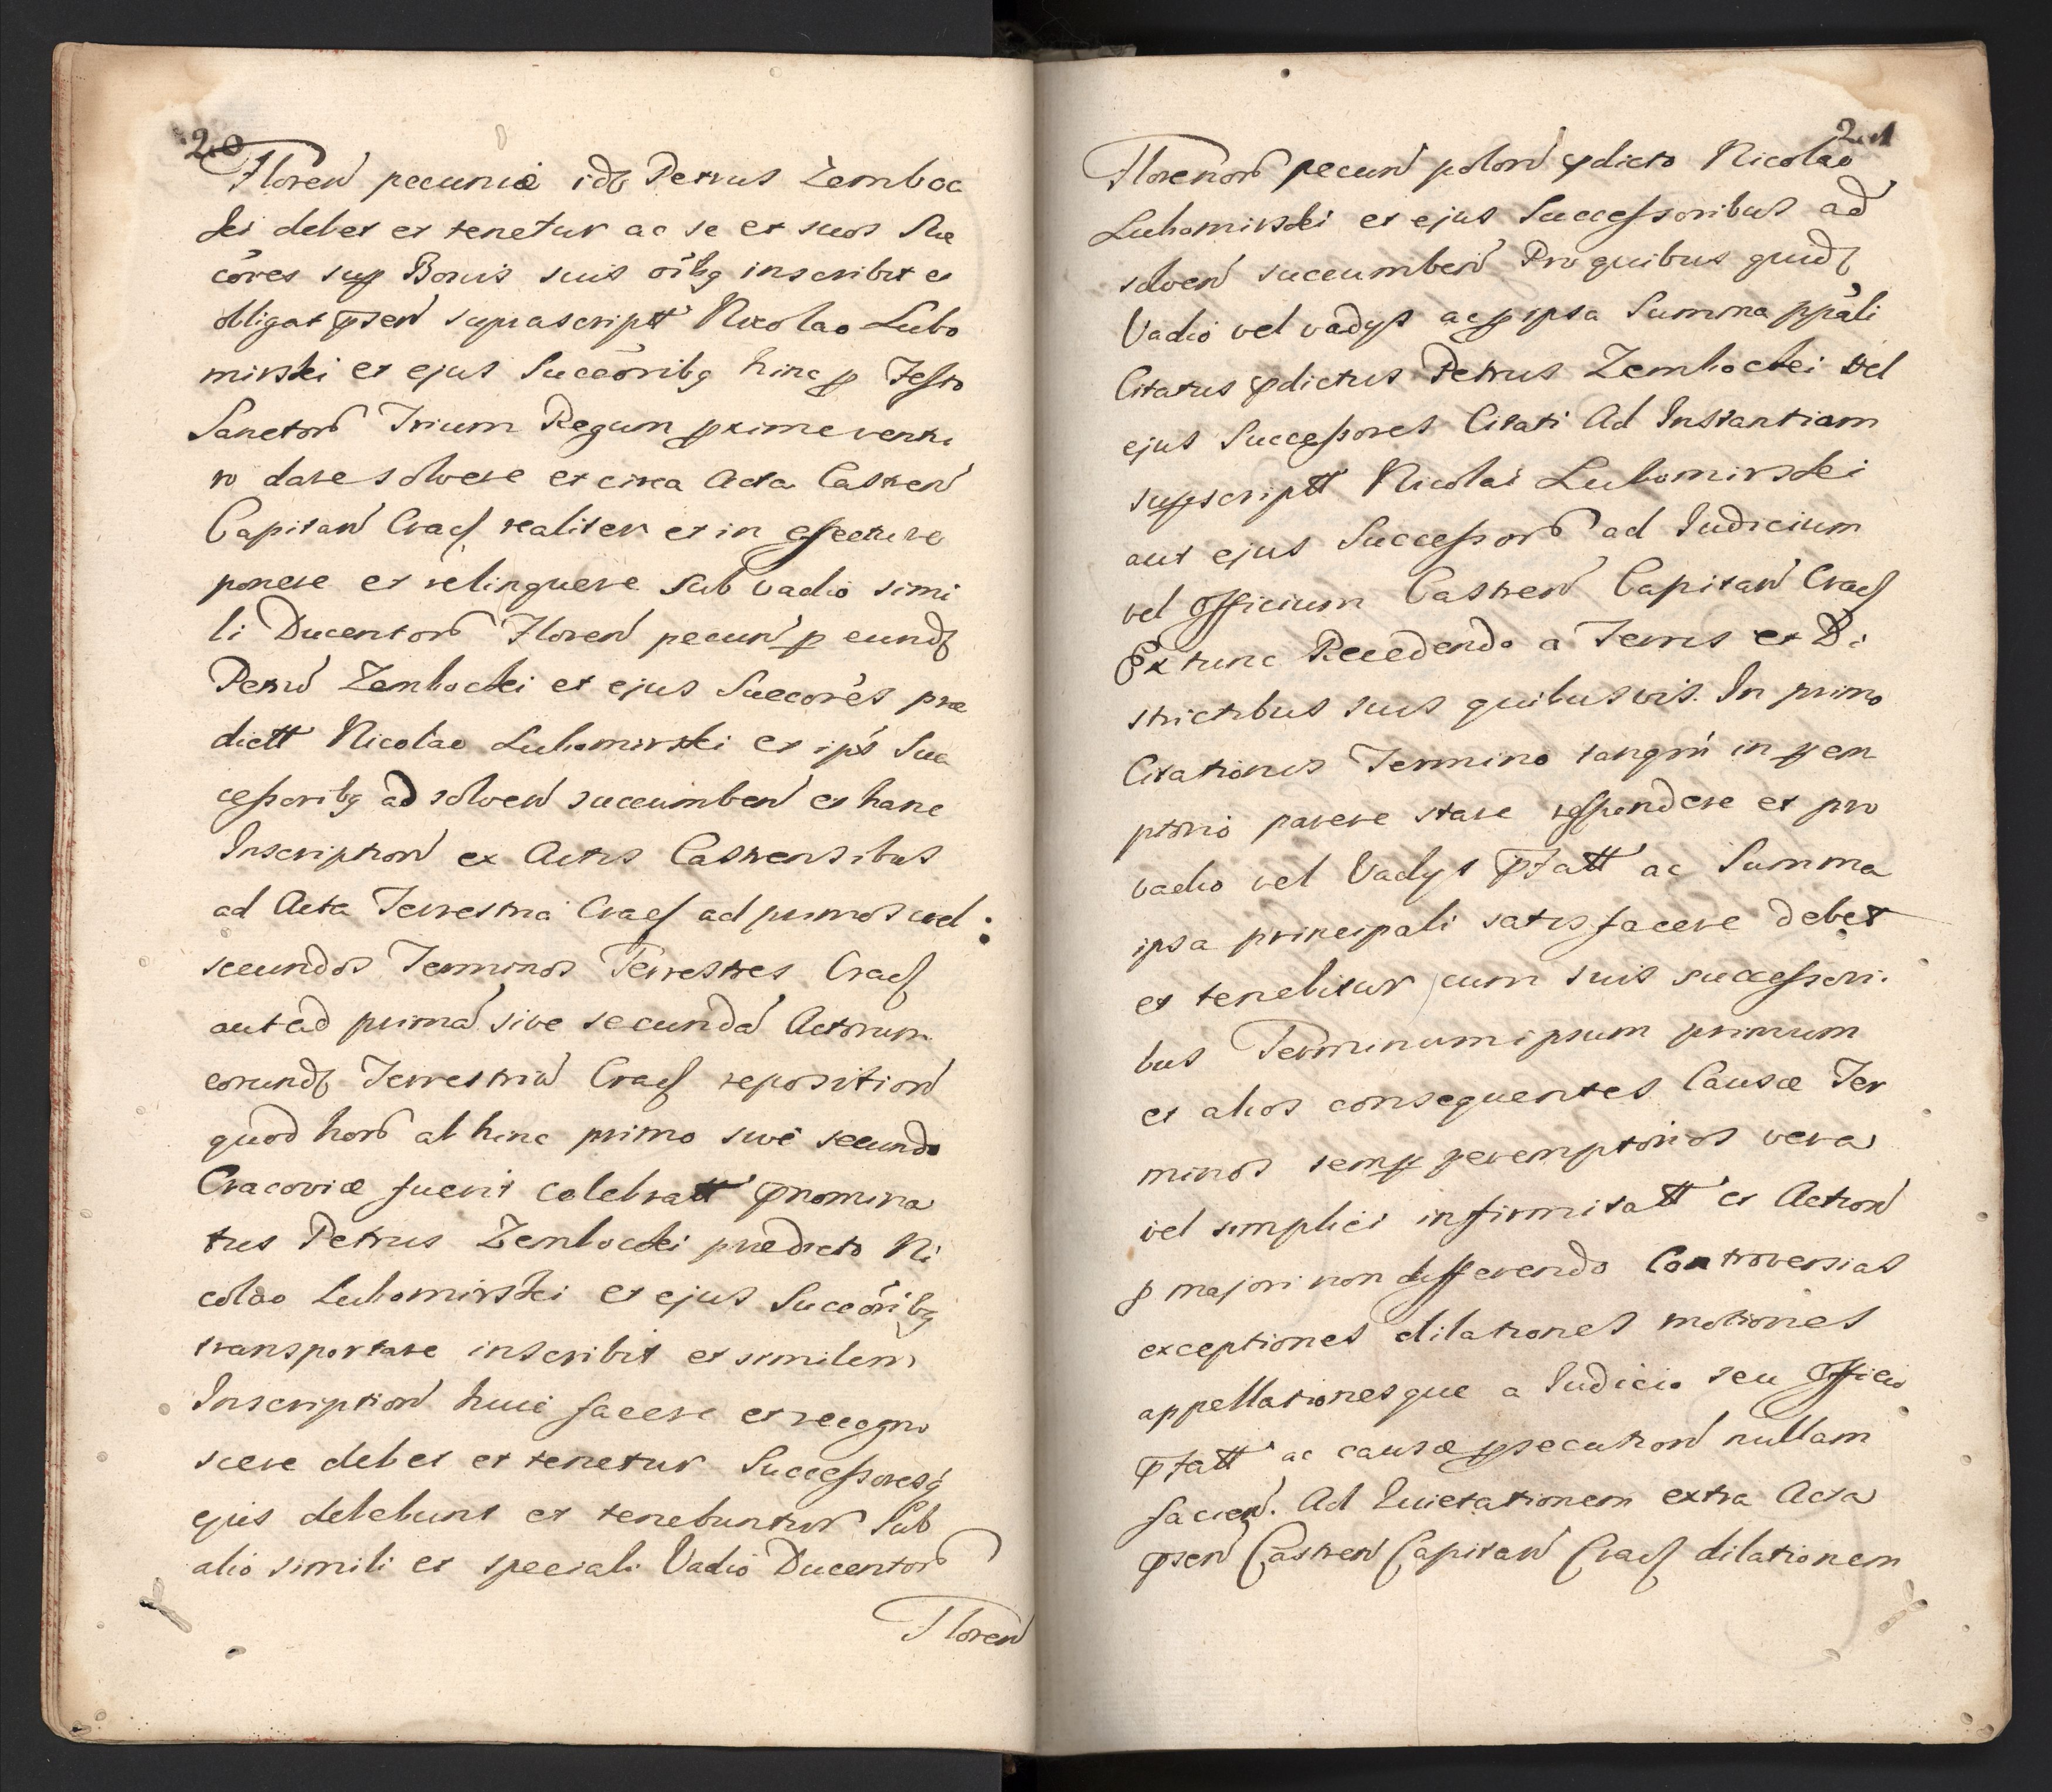 20
Floreń pecuniæ idꝫ Petrus Zemboc
ki debet et tenetur ac se et suos Suc
cōres sup Bonis suis oībꝫ inscribit et
obligat pseń suprascriptt Nicolao Lubo
mirski et ejus Succōribꝫ hinc p Festo
Sanctoꝝ Trium Regum pxime ventu
ro dare solvere et circa Acta Castreń
Capitań Cracꝭ realiter et in effectu re
ponere et relinquere sub vadio simi
li Ducentoꝝ Floreń pecuń p eundꝫ
Petrū Zembocki et ejus Succorēs præ
dictt Nicolao Lubomirski et ipś Suc
cessoribꝫ ad solveń succumbeń et hanc
Inscriptioń ex Actis Castrensibus
ad Acta Terrestria Cracꝭ ad primos vel
secundos Terminos Terrestres Cracꝭ
aut ad primā sive secundā Actorum
eorundꝫ Terrestriū Cracꝭ repositioń
quod horꝝ ab hinc primo sive secundo
Cracoviæ fuerit celebratt pnomina
tus Petrus Zembocki prædicto Ni
colao Lubomirski et ejus Succōribꝫ
transportare inscribit et similem
Inscriptioń huic facere et recogno
scere debet et tenetur Successoresq́
ejus debebunt et tenebuntur Sub
alio simili et speciali Vadio Ducentoꝝ
Floreń
21
Florenoꝝ pecuń poloń pdicto Nicolao
Lubomirski et ejus Successoribus ad
solveń succumbeń Pro quibus quidꝫ
Vadio vel vadys ac p ipsa Summa ppāli
Citatus pdictus Petrus Zembocki vel
ejus Successores Citati Ad Instantiam
supscriptt Nicolai Lubomirski
aut ejus Successoꝝ ad Judicium
vel Officium Castreń Capitań Cracꝭ
Ex tunc Recedendo a Terris et Di
strictibus suis quibusvis. In primo
Citationis Termino tanqm̄ in peren
ptorio parere stare respondere et pro
vadio vel Vadys pfatt ac Summa
ipsa principali satisfacere debet
et tenebitur cum suis successori
bus Terminum ipsum primum
et alios consequentes Causæ Ter
minos semp peremptorios vera
vel simplici infirmitatt et Actioń
p majori non differendo Controversias
exceptiones dilationes motiones
appellationesque a Judicio seu Officio
pfatt ac causæ psecutioń nullam
facień. Ad Quietationem extra Acta
pseń Castreń Capitań Cracꝭ dilationem